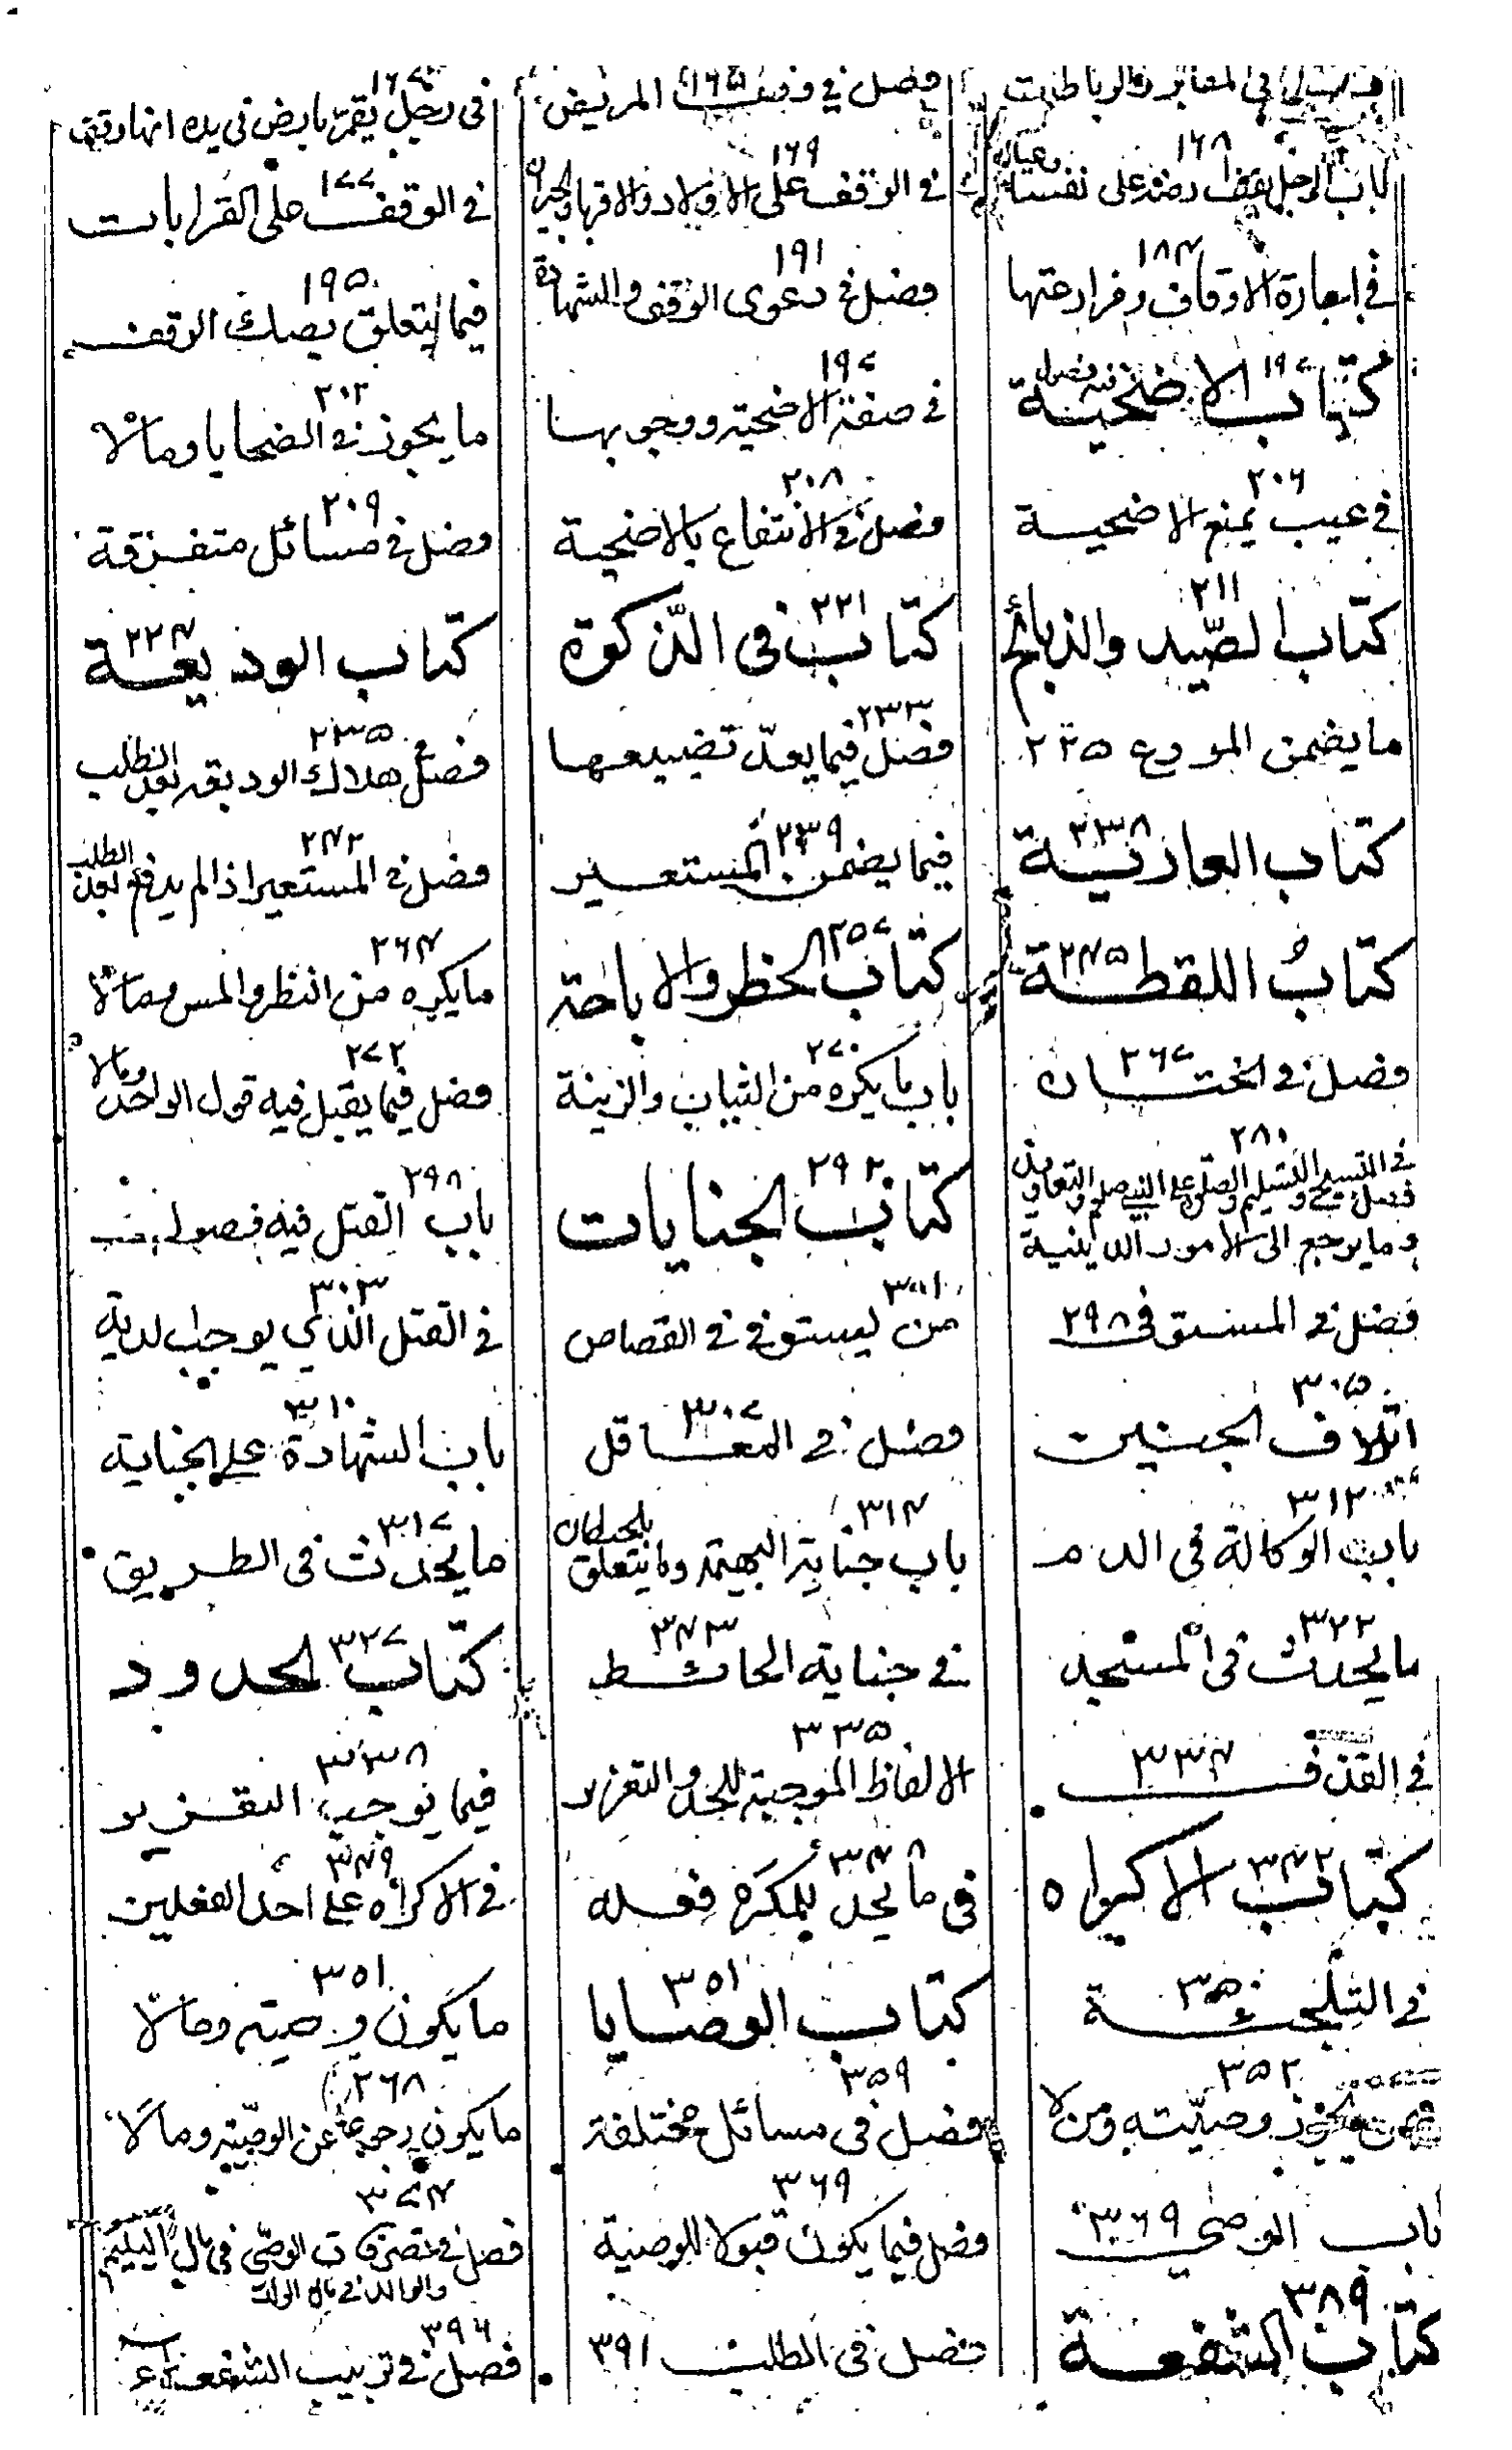 فصل في المقابر والرباطات
فصل في وقف المريض ١٦٥
في رجل يقر بارض في يده انها وقف
باب الرجل يقف ارضه على نفسه ١٦٨
في الوقف على الاولاد والاقرباء والجيران ١٦٩
في الوقف على القرابات ١٧٧
في اجارة الاوقاف ومزارعتها ١٨٤
فصل في دعوى الوقف والشهادة ١٩١
فيما يتعلق بصك الوقف ١٩٥
كتاب الاضحية فيه فصول ١٩٧
في صفة الاضحية ووجوبها ١٩٧
ما يجوز في الضحايا وما لا ٢٠٢
في عيب يمنع الاضحية ٢٠٦
فصل في الانتفاع بالاضحية ٢٠٨
فصل في مسائل متفرقة ٢٠٩
كتاب الصيد والذبائح ٢١١
كتاب في الذكوة ٢٢١
كتاب الوديعة ٢٢٤
ما يضمن المودع ٢٢٥
فصل فيما يعد تضييعها ٢٣٣
فصل في هلاك الوديعة بعد الطلب ٢٣٥
كتاب العارية ٢٣٨
فيما يضمن المستعير ٢٣٩
فصل في المستعير اذا لم يدفع بعد الطلب ٢٤٢
كتاب اللقطة ٢٤٥
كتاب الحظر والاباحة ٢٥٧
ما يكره من النظر والمس وما لا ٢٦٤
فصل في الختان ٢٦٧
باب ما يكره من الثياب والزينة ٢٧٠
فصل فيما يقبل فيه قول الواحد وما لا ٢٧٢
فصل في التسبيح والتسليم والصلوة على النبي صلعم والتعاويذ ٢٨٠
وما يرجع الى الامور الدينية
كتاب الجنايات ٢٩٢
باب القتل فيه فصول ٢٩٨
فصل في المستوفى ٢٩٨
من يستوفى في القصاص ٣٠١
في القتل الذي يوجب الدية ٣٠٣
اتلاف الجنين ٣٠٥
فصل في المعاقل ٣٠٧
باب الشهادة على الجناية ٣١٠
باب الوكالة في الدم ٣١٢
باب جناية البهيمة وما يتعلق بالحيطان ٣١٤
ما يحدث في الطريق ٣١٧
ما يحدث في المسجد ٣٢٢
في جناية الحائط ٣٤٣
كتاب الحدود ٣٢٧
في القذف ٣٣٤
الالفاظ الموجبة للحد والتعزير ٣٣٥
فيما يوجب التعزير ٣٣٨
كتاب الاكراه ٣٤٢
في ما يحل للمكره فعله ٣٤٨
في الاكراه على احد الفعلين ٣٤٩
في التلجئة ٣٥٠
كتاب الوصايا ٣٥١
ما يكون وصية وما لا ٣٥١
فيمن يجوز وصيته ومن لا ٣٥٢
فصل في مسائل مختلفة ٣٥٩
ما يكون رجوعا عن الوصية وما لا ٢٦٨
باب الوصي ٣٦٩
فصل فيما يكون قبولا للوصية ٣٦٩
فصل في تصرفات الوصي في مال اليتيم ٣٧٤
والوالد في مال الولد
كتاب الشفعة ٣٨٩
فصل في الطلب ٣٩١
فصل في ترتيب الشفعة ٣٩٦